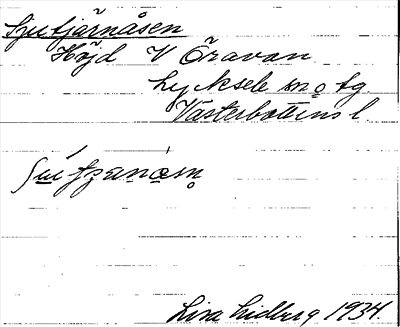 Sjutjärnåsen
Höjd V Öravan
Lycksele sn o tg.
Västerbottens l.
Lisa Lidberg 1934.